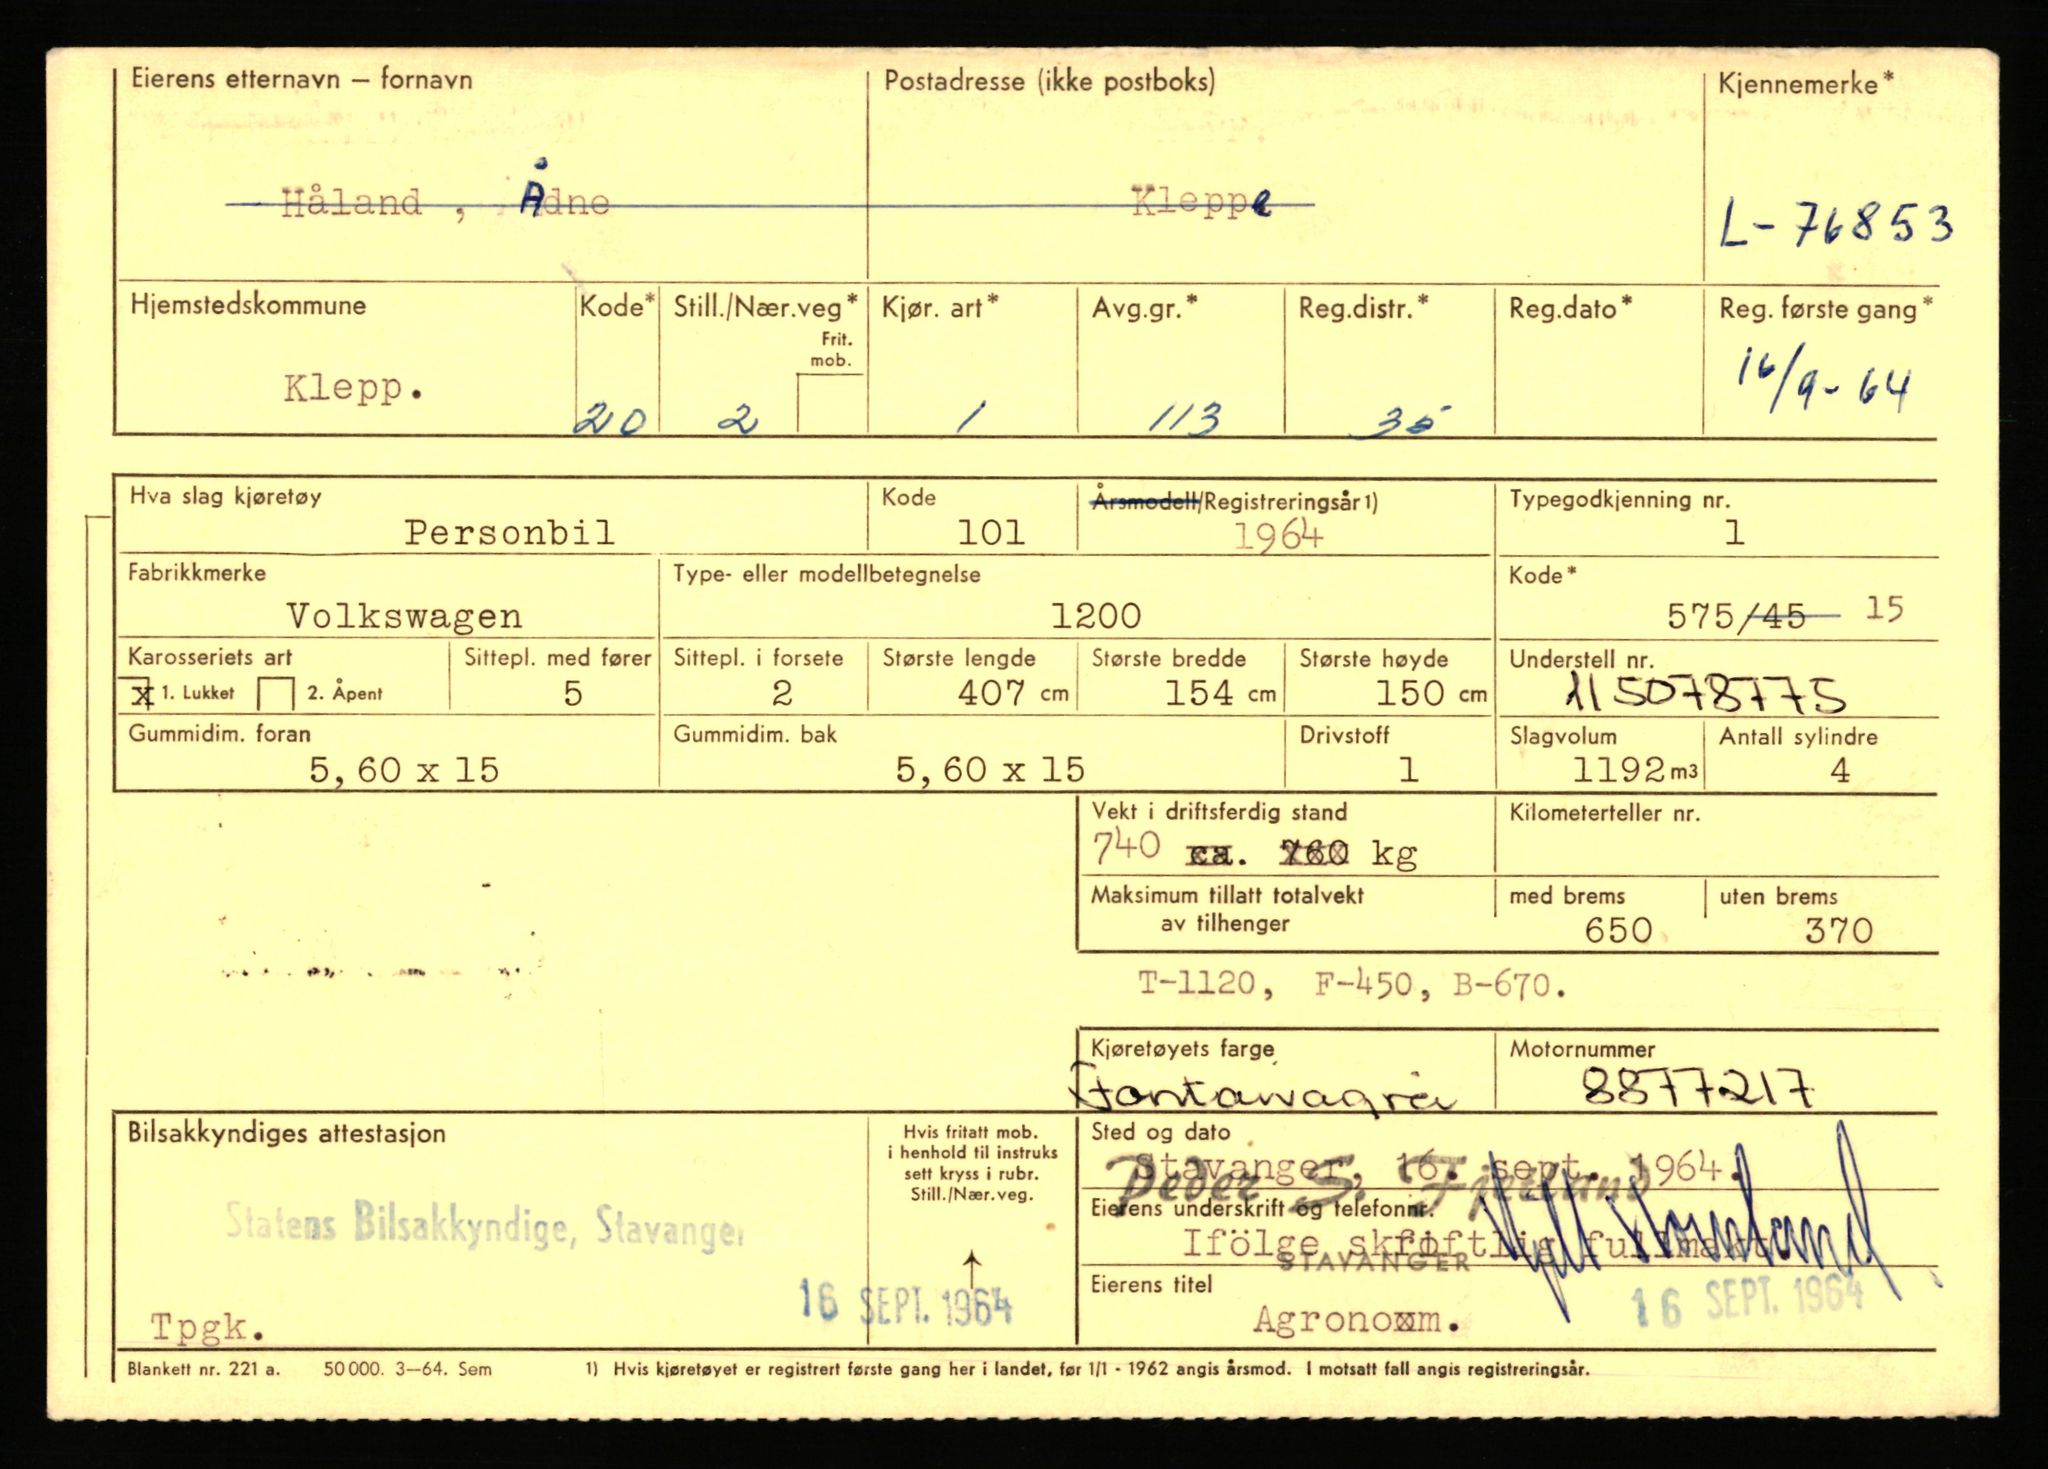 Eierens etternavn – fornavn
Postadresse (ikke postboks)
Kjennemerke*
Håland , Ådne
Kleppe
L-76853
Hjemstedskommune
Kode*
Still./Nær.veg*
Frit. mob.
Kjør. art*
Avg.gr.*
Reg.distr.*
Reg.dato*
Reg. første gang*
Klepp.
20
2
1
113
35
16/9-64
Hva slag kjøretøy
Kode
Årsmodell/Registreringsår 1)
Typegodkjenning nr.
Personbil
101
1964
1
Fabrikkmerke
Type- eller modellbetegnelse
Kode*
Volkswagen
1200
575/45 15
Karosseriets art
Sittepl. med fører
Sittepl. i forsete
Største lengde
Største bredde
Største høyde
Understell nr.
x 1. Lukket 2. Åpent
5
2
407 cm
154 cm
150 cm
115078775
Gummidim. foran
Gummidim. bak
Drivstoff
Slagvolum
Antall sylindre
5,60 x 15
5,60 x 15
1
1192 m3
4
Vekt i driftsferdig stand
Kilometerteller nr.
740 ca. 760 kg
Maksimum tillatt totalvekt
av tilhenger
med brems
uten brems
650
370
T-1120, F-450, B-670.
Kjøretøyets farge
Motornummer
8877217
Bilsakkyndiges attestasjon
Hvis fritatt mob.
i henhold til instruks
sett kryss i rubr.
Still./Nær.veg.
Sted og dato
Stavanger, 16. sept. 1964.
Peder S. Fjetland
Eierens underskrift og telefonnr.
Statens Bilsakkyndige, Stavanger
Ifölge skriftlig fullmakt.
STAVANGER
Eierens titel
16 SEPT. 1964
16 SEPT. 1964
Tpgk.
Agronoxm.
Blankett nr. 221 a. 50 000. 3–64. Sem
1) Hvis kjøretøyet er registrert første gang her i landet, før 1/1 - 1962 angis årsmod. I motsatt fall angis registreringsår.